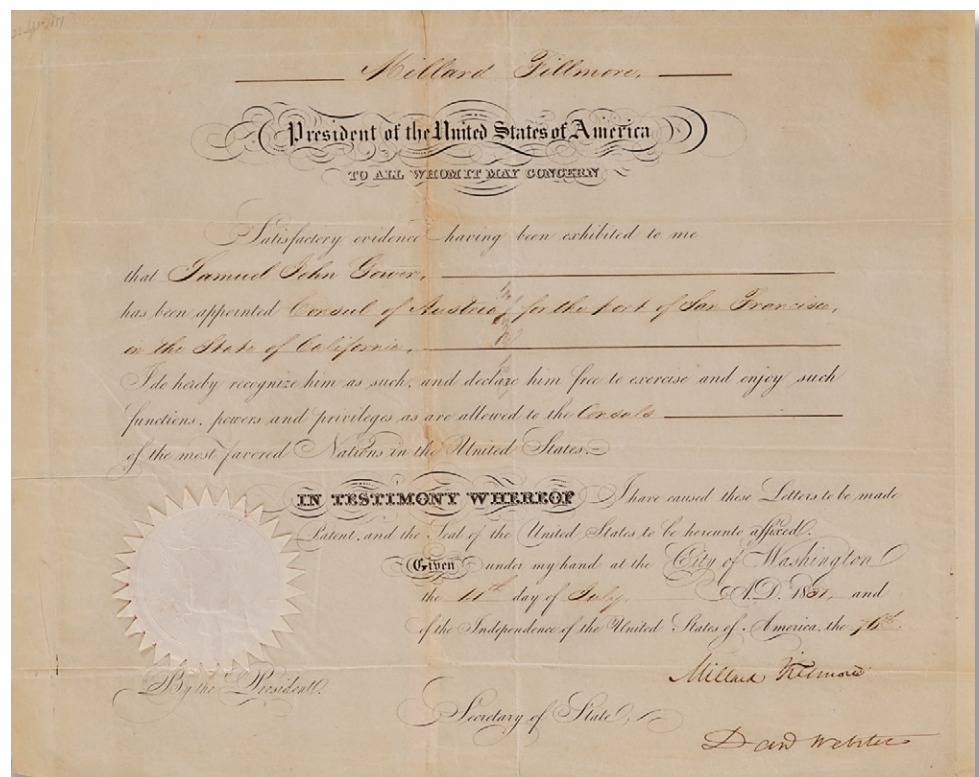 Millard Fillmore,
President of the United States of America
TO ALL WHOM IT MAY CONCERN
Satisfactory evidence having been exhibited to me
that Samuel John Gower,
has been appointed Consul of Austria, for the port of San Francisco,
in the State of California,
I do hereby recognize him as such, and declare him free to exercise and enjoy such
functions, powers and privileges as are allowed to the Consuls
of the most favored Nations in the United States.
IN TESTIMONY WHEREOF I have caused these Letters to be made
Patent, and the Seal of the United States to be hereunto affixed.
Given under my hand at the City of Washington
the 11th day of July, A.D. 1851, and
of the Independence of the United States of America, the 76th.
Millard Fillmore
By the President,
Secretary of State,
Danl Webster